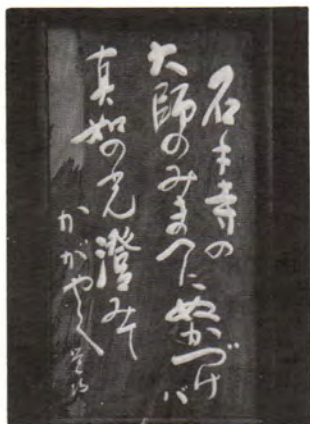 石手寺の
大師のみまへにぬかづけバ
真如の光澄みて
かがやく